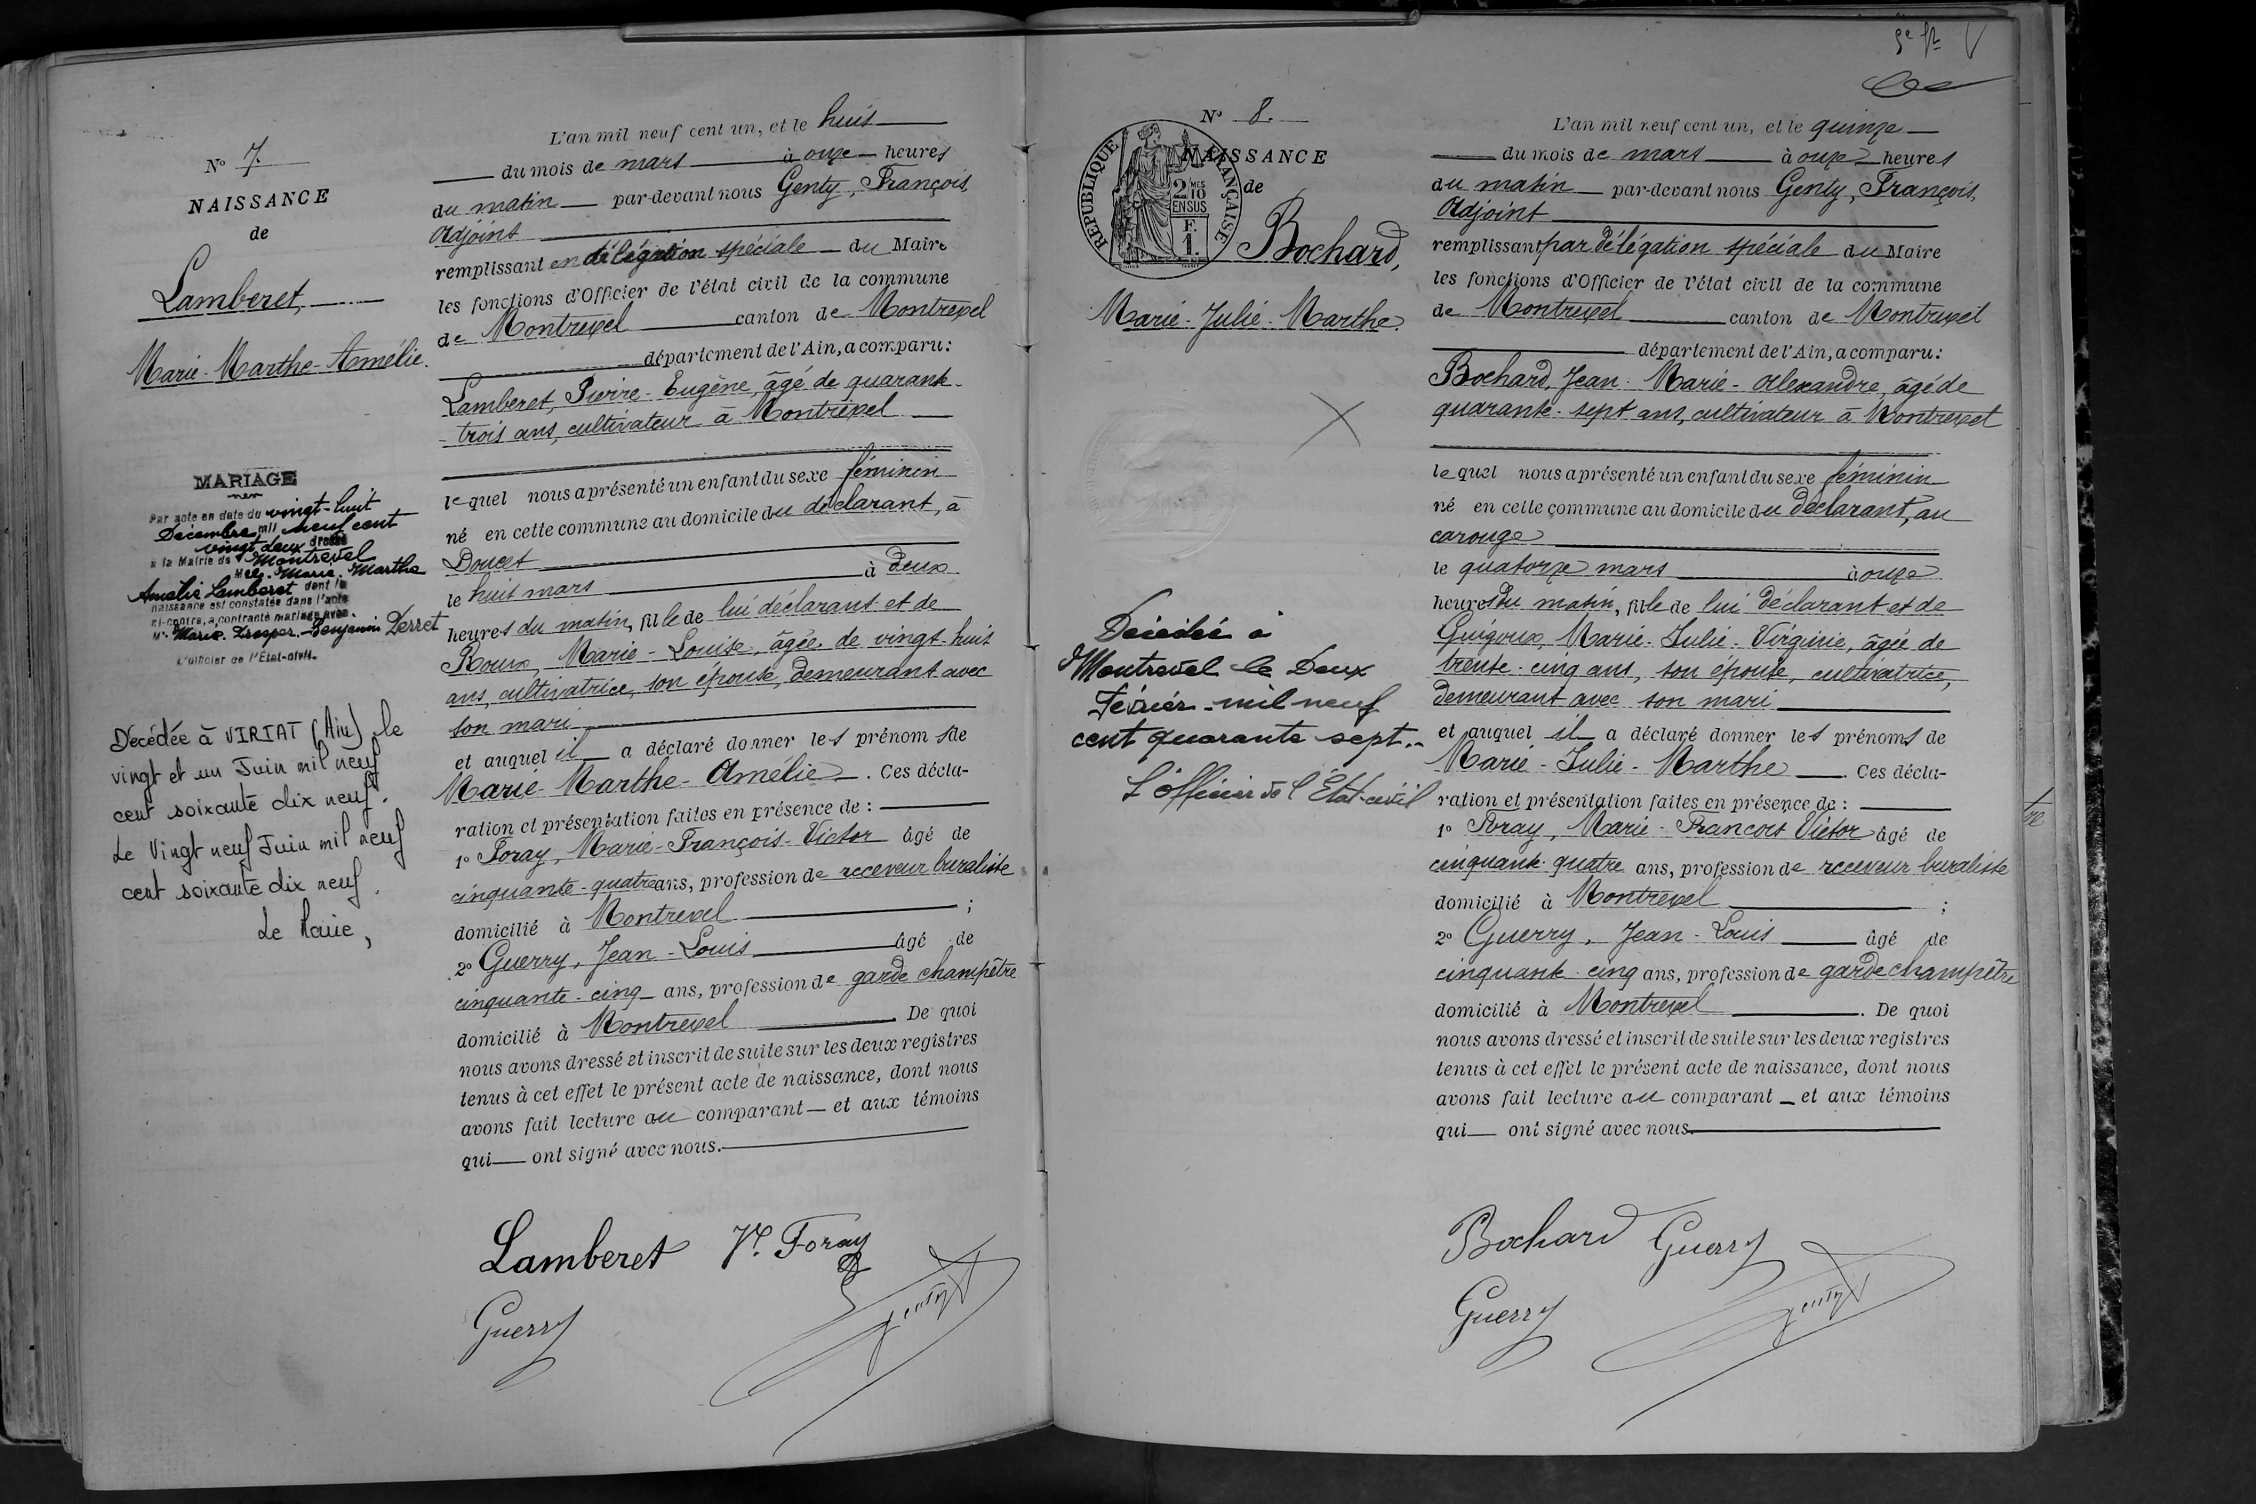 N° 7.
NAISSANCE
de
Lamberet,
Marie-Marthe-Amélie.
MARIAGE
Par acte en date du vingt-huit
Décembre mil neuf cent
vingt deux dressé
à la Mairie de Montrevel
Melle Marie-Marthe
Amélie Lamberet dont la
naissance est constatée dans l'acte
ci-contre, a contracté mariage avec
Mr Marie-Prosper-Benjamin Perret
L'officier de l'État-civil.
Décédée à VIRIAT (Ain) le
vingt et un Juin mil neuf
cent soixante dix neuf.
Le Vingt neuf Juin mil neuf
cent soixante dix neuf.
Le Maire,
L'an mil neuf cent un, et le huit
du mois de mars à onze heures
du matin par-devant nous Genty, François,
Adjoint
remplissant en délégation spéciale du Maire
les fonctions d'Officier de l'état civil de la commune
de Montrevel canton de Montrevel
département de l'Ain, a comparu:
Lamberet, Pierre-Eugène, âgé de quarante-
-trois ans, cultivateur à Montrevel
lequel nous a présenté un enfant du sexe féminin
né en cette commune au domicile du déclarant, à
Doucet
le huit mars à deux
heures du matin, fille de lui déclarant et de
Roux, Marie-Louise, âgée de vingt-huit
ans, cultivatrice, son épouse, demeurant avec
son mari
et auquel il a déclaré donner les prénoms de
Marie-Marthe-Amélie. Ces décla-
ration et présentation faites en présence de :
1° Foray, Marie-François-Victor âgé de
cinquante-quatre ans, profession de receveur buraliste
domicilié à Montrevel ;
2° Guerry, Jean-Louis âgé de
cinquante-cinq ans, profession de garde champêtre
domicilié à Montrevel. De quoi
nous avons dressé et inscrit de suite sur les deux registres
tenus à cet effet le présent acte de naissance, dont nous
avons fait lecture au comparant et aux témoins
qui ont signé avec nous.
Lamberet Vr. Foray
Guerry Genty
N° 8.
NAISSANCE
de
RÉPUBLIQUE FRANÇAISE
2 MES 10
EN SUS
F.
1.
Bochard,
Marie-Julie-Marthe.
Décédée à
Montrevel le Deux
Février mil neuf
cent quarante sept.
L'officier de l'État-civil
L'an mil neuf cent un, et le quinze
du mois de mars à onze heures
du matin par-devant nous Genty, François,
Adjoint
remplissant par délégation spéciale du Maire
les fonctions d'Officier de l'état civil de la commune
de Montrevel canton de Montrevel
département de l'Ain, a comparu:
Bochard, Jean-Marie-Alexandre, âgé de
quarante-sept ans, cultivateur à Montrevel
lequel nous a présenté un enfant du sexe féminin
né en cette commune au domicile du déclarant, au
carouge
le quatorze mars à onze
heures du matin, fille de lui déclarant et de
Guigoux, Marie-Julie-Virginie, âgée de
trente-cinq ans, son épouse, cultivatrice,
demeurant avec son mari
et auquel il a déclaré donner les prénoms de
Marie-Julie-Marthe. Ces décla-
ration et présentation faites en présence de :
1° Foray, Marie-François Victor âgé de
cinquante-quatre ans, profession de receveur buraliste
domicilié à Montrevel ;
2° Guerry, Jean-Louis âgé de
cinquante-cinq ans, profession de garde champêtre
domicilié à Montrevel. De quoi
nous avons dressé et inscrit de suite sur les deux registres
tenus à cet effet le présent acte de naissance, dont nous
avons fait lecture au comparant et aux témoins
qui ont signé avec nous.
Bochard Guerry
Guerry Genty
tre